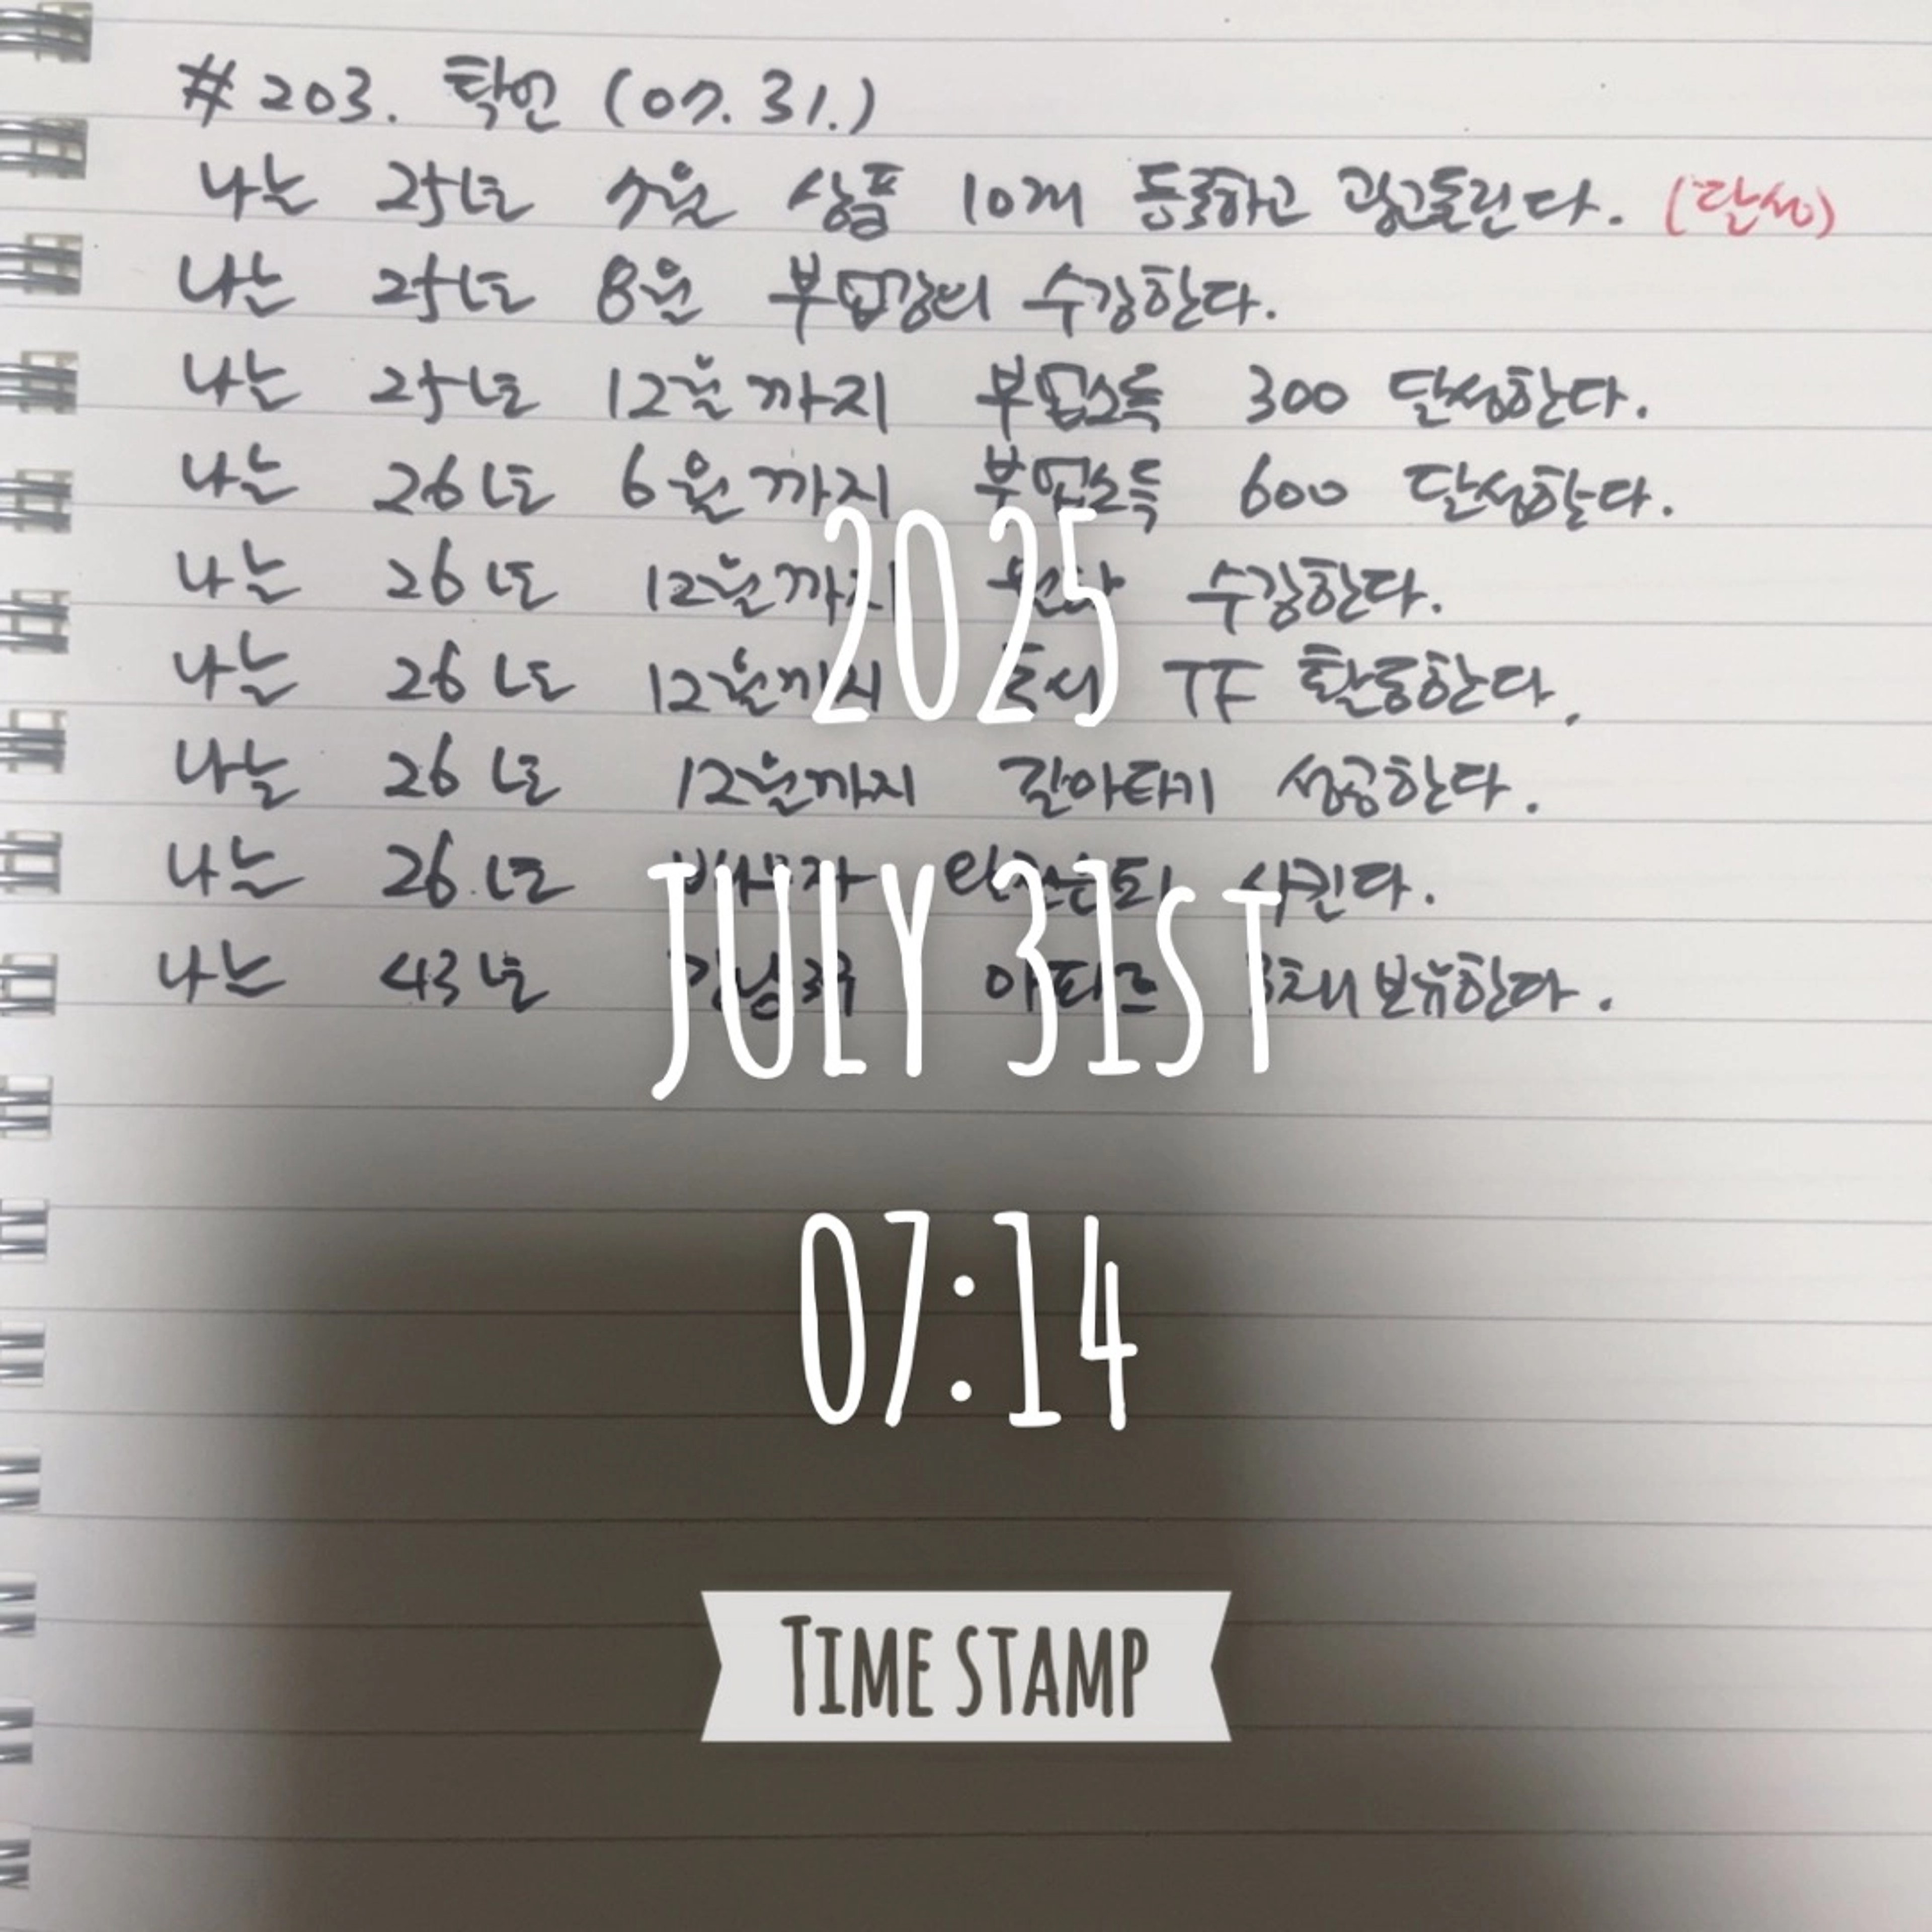 #203. 확언 (07. 31.)
나는 25년 7월 상품 10개 등록하고 광고돌린다. (달성)
나는 25년 8월 부업강의 수강한다.
나는 25년 12월까지 부업소득 300 달성한다.
나는 26년 6월까지 부업소득 600 달성한다.
나는 26년 12월까지 수강한다.
나는 26년 12월까지 독서 TF 활동한다.
나는 26년 12월까지 갈아타기 성공한다.
나는 26년 배우자 안전은퇴 시킨다.
나는 43년 강남3구 아파트 3채 보유한다.
2025
JULY 31ST
07:14
TIME STAMP